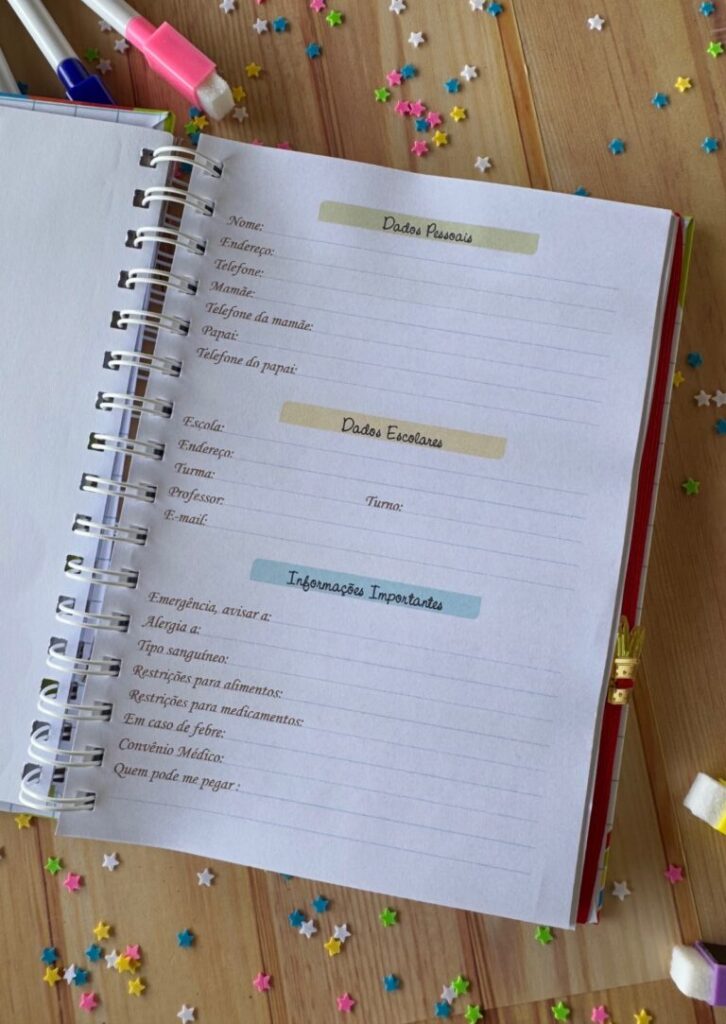 Dados Pessoais
Nome:
Endereço:
Telefone:
Mamãe:
Telefone da mamãe:
Papai:
Telefone do papai:
Dados Escolares
Escola:
Endereço:
Turma:
Professor: Turno:
E-mail:
Informações Importantes
Emergência, avisar a:
Alergia a:
Tipo sanguíneo:
Restrições para alimentos:
Restrições para medicamentos:
Em caso de febre:
Convênio Médico:
Quem pode me pegar :